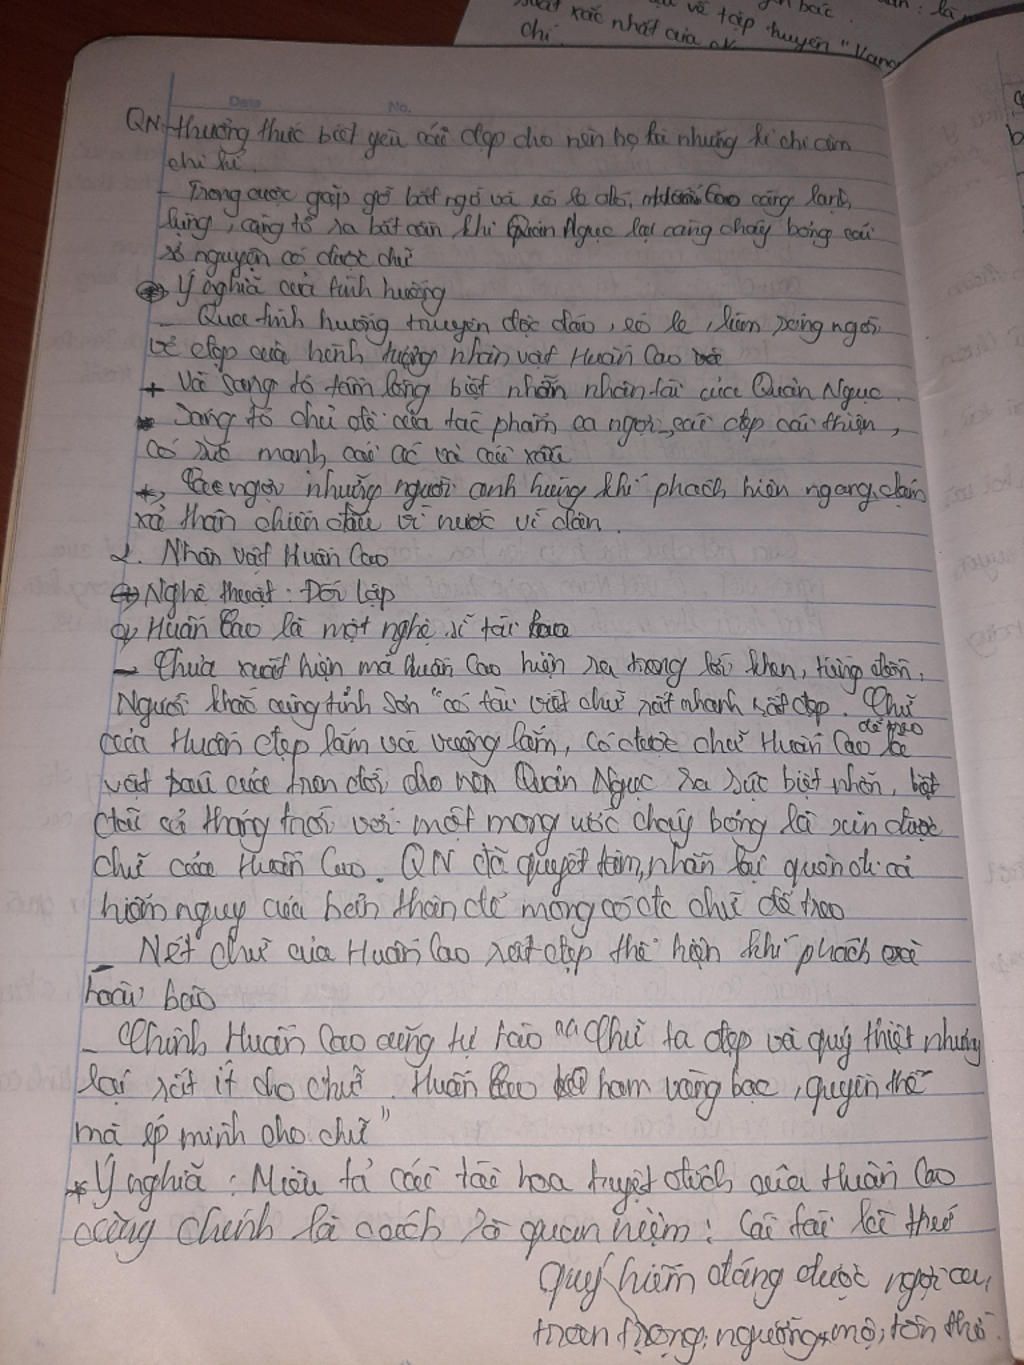 xác nhất của
về tập truyện "Vang
chí
Date No.
QN: thưởng thức biết yêu cái đẹp cho nên họ là những tri âm
tri kỉ.
- Trong cuộc gặp gỡ bất ngờ và éo le đó, Huấn Cao càng lạnh
lùng, càng tỏ ra bất cần khi Quản Ngục lại càng cháy bỏng cái
sở nguyện có được chữ
Ý nghĩa của tình huống
- Qua tình huống truyện độc đáo, éo le, làm sáng ngời
vẻ đẹp của hình tượng nhân vật Huấn Cao
+ Và sáng tỏ tấm lòng biệt nhỡn nhân tài của Quản Ngục.
* Sáng tỏ chủ đề của tác phẩm ca ngợi cái đẹp cái thiện,
có sức mạnh cái ác và cái xấu
+, Ca ngợi những người anh hùng khí phách hiên ngang, dám
xả thân chiến đấu vì nước vì dân.
2. Nhân vật Huấn Cao
Nghệ thuật: Đối lập
a, Huấn Cao là một nghệ sĩ tài hoa
- Chưa xuất hiện mà Huấn Cao hiện ra trong lời khen, từng đồn,
Người khắp vùng tỉnh Sơn "có tài viết chữ rất nhanh rất đẹp. Chữ
của Huấn đẹp lắm và vuông lắm, có được chữ Huấn Cao để treo là
vật báu của trên đời cho nên Quản Ngục ra sức biệt nhỡn, biệt
đãi cả tháng trời với một mong ước cháy bỏng là xin được
chữ của Huấn Cao. QN đã quyết tâm, nhẫn lại quên đi cả
hiểm nguy của bản thân để mong có đc chữ để treo
- Nét chữ của Huấn Cao rất đẹp thể hiện khí phách và
hoài bão
- Chính Huấn Cao cũng tự hào "Chữ ta đẹp và quý thiệt nhưng
lại rất ít cho chữ. Huấn Cao ham vàng bạc, quyền thế
mà ép mình cho chữ"
* Ý nghĩa: Miêu tả cái tài hoa tuyệt đích của Huấn Cao
cũng chính là cách rõ quan niệm: Cái tài là thứ
quý hiếm đáng được ngợi ca,
trân trọng, ngưỡng mộ, tôn thờ.